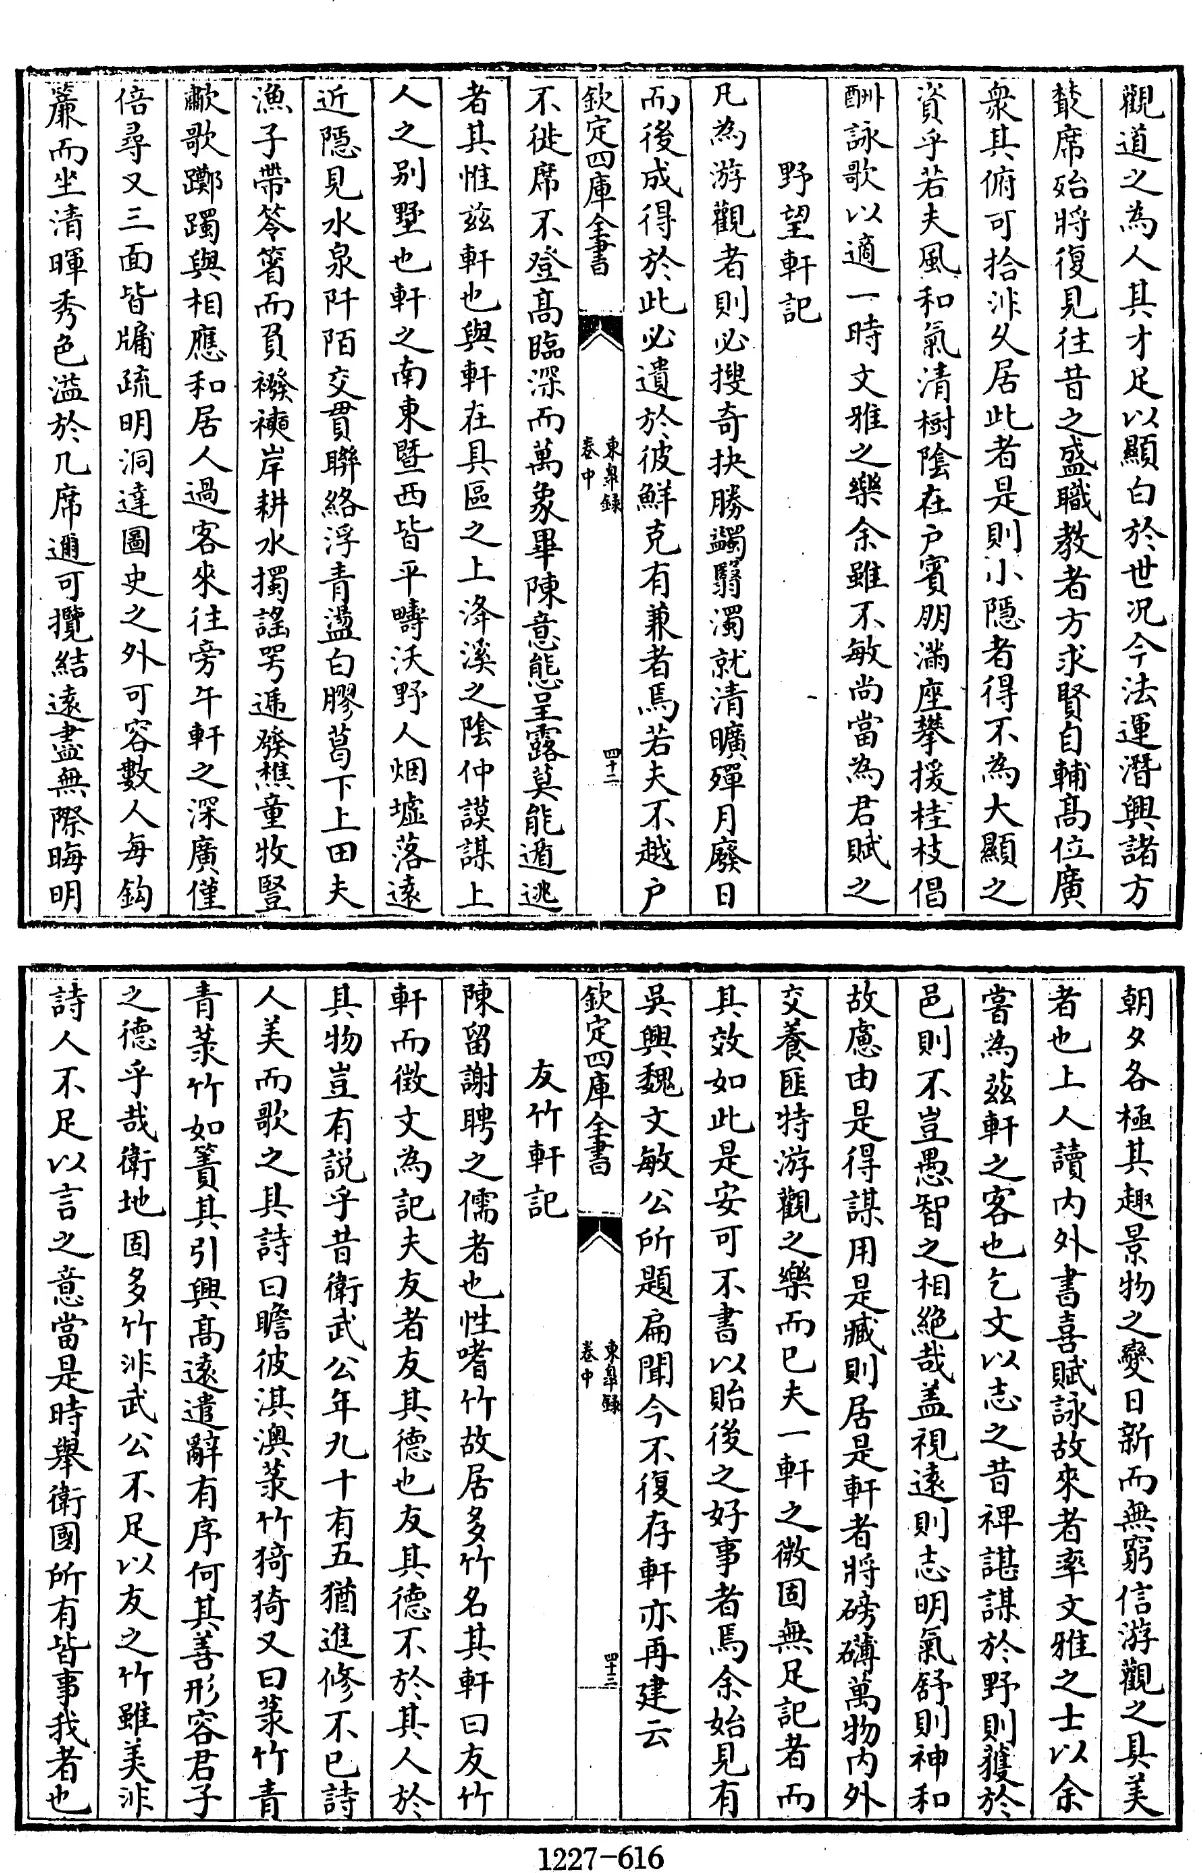 觀道之為人其才足以顯白於世況今法運潛興諸方
叢席殆將復見往昔之盛職教者方求賢自輔髙位廣
衆其俯可拾泮久居此者是則小隱者得不為大顯之
資乎若夫風和氣清樹陰在户賓朋滿座攀援桂枝倡
酬詠歌以適一時文雅之樂余雖不敏尚當為君賦之
野望軒記
凡為游觀者則必搜竒抉勝蠲翳濁就清曠殫月廢日
而後成得於此必遺於彼鮮克有兼者焉若夫不越户
欽定四庫全書
東臯録
卷中
四十二
不徙席不登髙臨深而萬象畢陳意態呈露莫能遁逃
者其惟兹軒也與軒在具區之上洚溪之陰仲謨謀上
人之别墅也軒之南東暨西皆平疇沃野人烟墟落遠
近隱見水泉阡陌交貫聯絡浮青盪白膠葛下上田夫
漁子帶笭箵而負襏襫岸耕水擉謡咢遞發樵童牧豎
歗歌躑躅與相應和居人過客來往旁午軒之深廣僅
倍尋又三面皆牖疏明洞達圖史之外可容數人每鈎
簾而坐清暉秀色溢於几席邇可攬結遠盡無際晦明
朝夕各極其趣景物之變日新而無窮信游觀之具美
者也上人讀内外書喜賦詠故來者率文雅之士以余
嘗為兹軒之客也乞文以志之昔裨諶謀於野則獲於
邑則不豈愚智之相絶哉盖視遠則志明氣舒則神和
故慮由是得謀用是臧則居是軒者將磅礴萬物内外
交養匪特游觀之樂而已夫一軒之微固無足記者而
其效如此是安可不書以貽後之好事者焉余始見有
吳興魏文敏公所題扁聞今不復存軒亦再建云
欽定四庫全書
東臯録
卷中
四十三
友竹軒記
陳留謝聘之儒者也性嗜竹故居多竹名其軒曰友竹
軒而徴文為記夫友者友其德也友其德不於其人於
其物豈有説乎昔衛武公年九十有五猶進修不已詩
人美而歌之其詩曰瞻彼淇澳菉竹猗猗又曰菉竹青
青菉竹如簀其引興髙遠遣辭有序何其善形容君子
之德乎哉衛地固多竹非武公不足以友之竹雖美非
詩人不足以言之意當是時舉衛國所有皆事我者也
1227-616